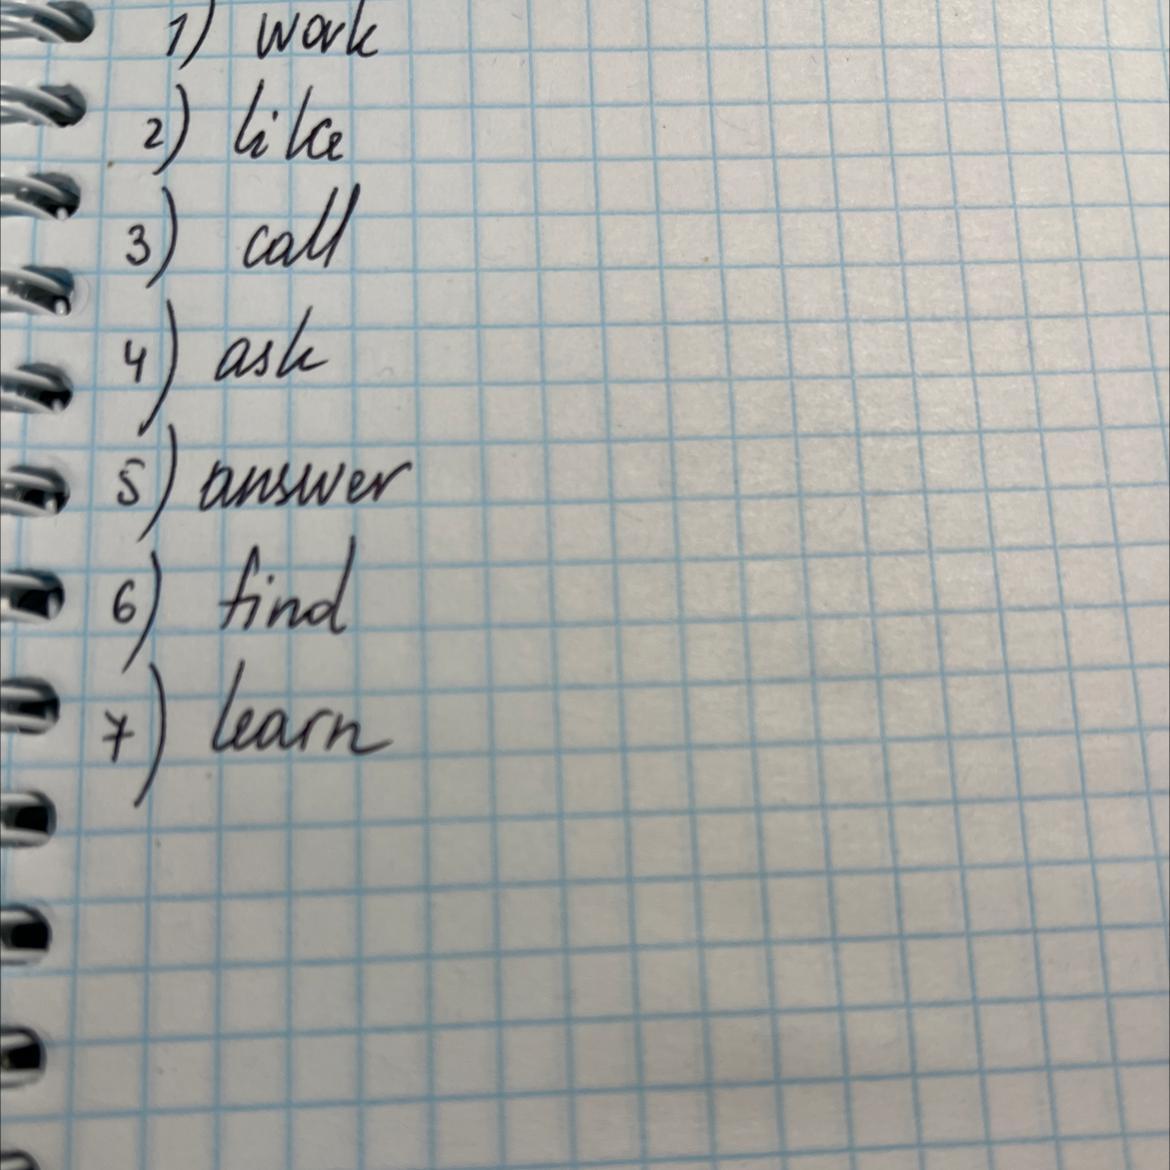 1) work
2) like
3) call
4) ask
5) answer
6) find
7) learn